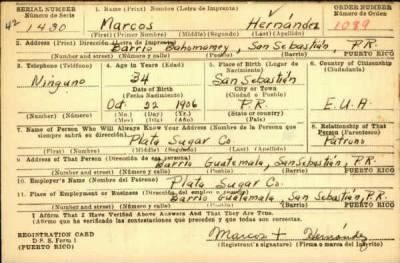 SERIAL NUMBER 1. Name (Print) / Nombre (Letra de Imprenta) ORDER NUMBER
Número de Serie Número de Orden
1430 Marcos Hernández 1089
(First) (Primer Nombre) (Middle) (Segundo) (Last) (Apellido)
2. Address (Print) / Dirección (Letra de Imprenta)
Barrio Bahomamey, San Sebastián P.R.
Number and street (Número y calle) Barrio (Barrio) Town (Pueblo) PUERTO RICO
3. Telephone (Teléfono) 4. Age in Years (Edad) 5. Place of Birth (Lugar de Nacimiento) 6. Country of Citizenship (Ciudadanía)
Ninguno 34 San Sebastián
Date of Birth City or Town
(Fecha Nacimiento) (Ciudad o Pueblo)
Oct 22 1906 P.R. E.U.A.
Number) (Número) (Mo.) (Day) (Yr.) State or country) (Country) (País)
(Mes) (Día) (Año) (Estado o país)
7. Name of Person Who Will Always Know Your Address (Nombre de la Persona que siempre sabrá su dirección) 8. Relationship of That Person (Parentesco)
Plata Sugar Co. Patrono
(First) (Número) (Middle) (Segundo) (Last) (Apellido)
9. Address of That Person (Dirección de esa persona)
Barrio Guatemala, San Sebastián, P.R.
Number and street (Número y calle) Barrio (Barrio) Town (Pueblo) PUERTO RICO
10. Employer's Name (Nombre del Patrono) Plata Sugar Co.
11. Place of Employment or Business (Dirección del empleo o negocio)
Barrio Guatemala San Sebastián, P.R.
Number and street) (Número y calle) Barrio (Barrio) Town (Pueblo) PUERTO RICO
I Affirm That I Have Verified Above Answers And That They Are True.
(Afirmo que he verificado las contestaciones que preceden y que todas son correctas.
REGISTRATION CARD Marcos + Hernández
D. S. S. Form 1 (Registrant's signature) (Firma o marca del Inscrito)
(PUERTO RICO)